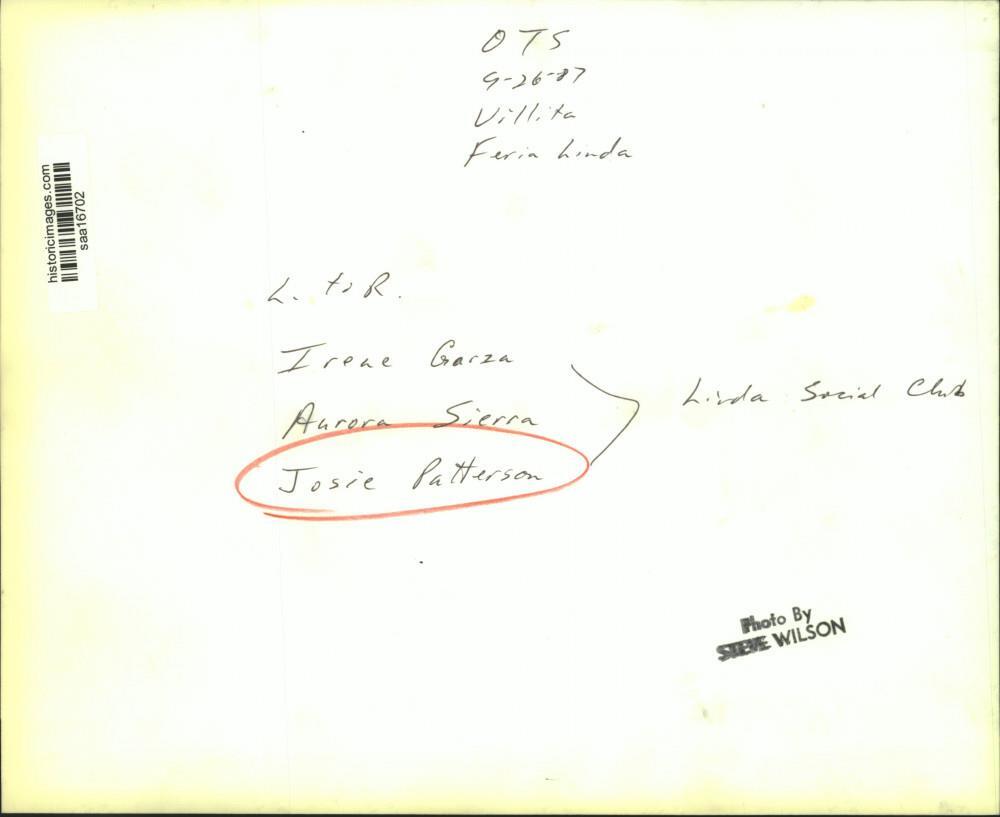 OTS
9-26-87
Villita
Feria Linda
historicimages.com
saa16702
L. to R.
Irene Garza
Aurora Sierra
Josie Patterson
Linda Social Club
Photo By
STEVE WILSON